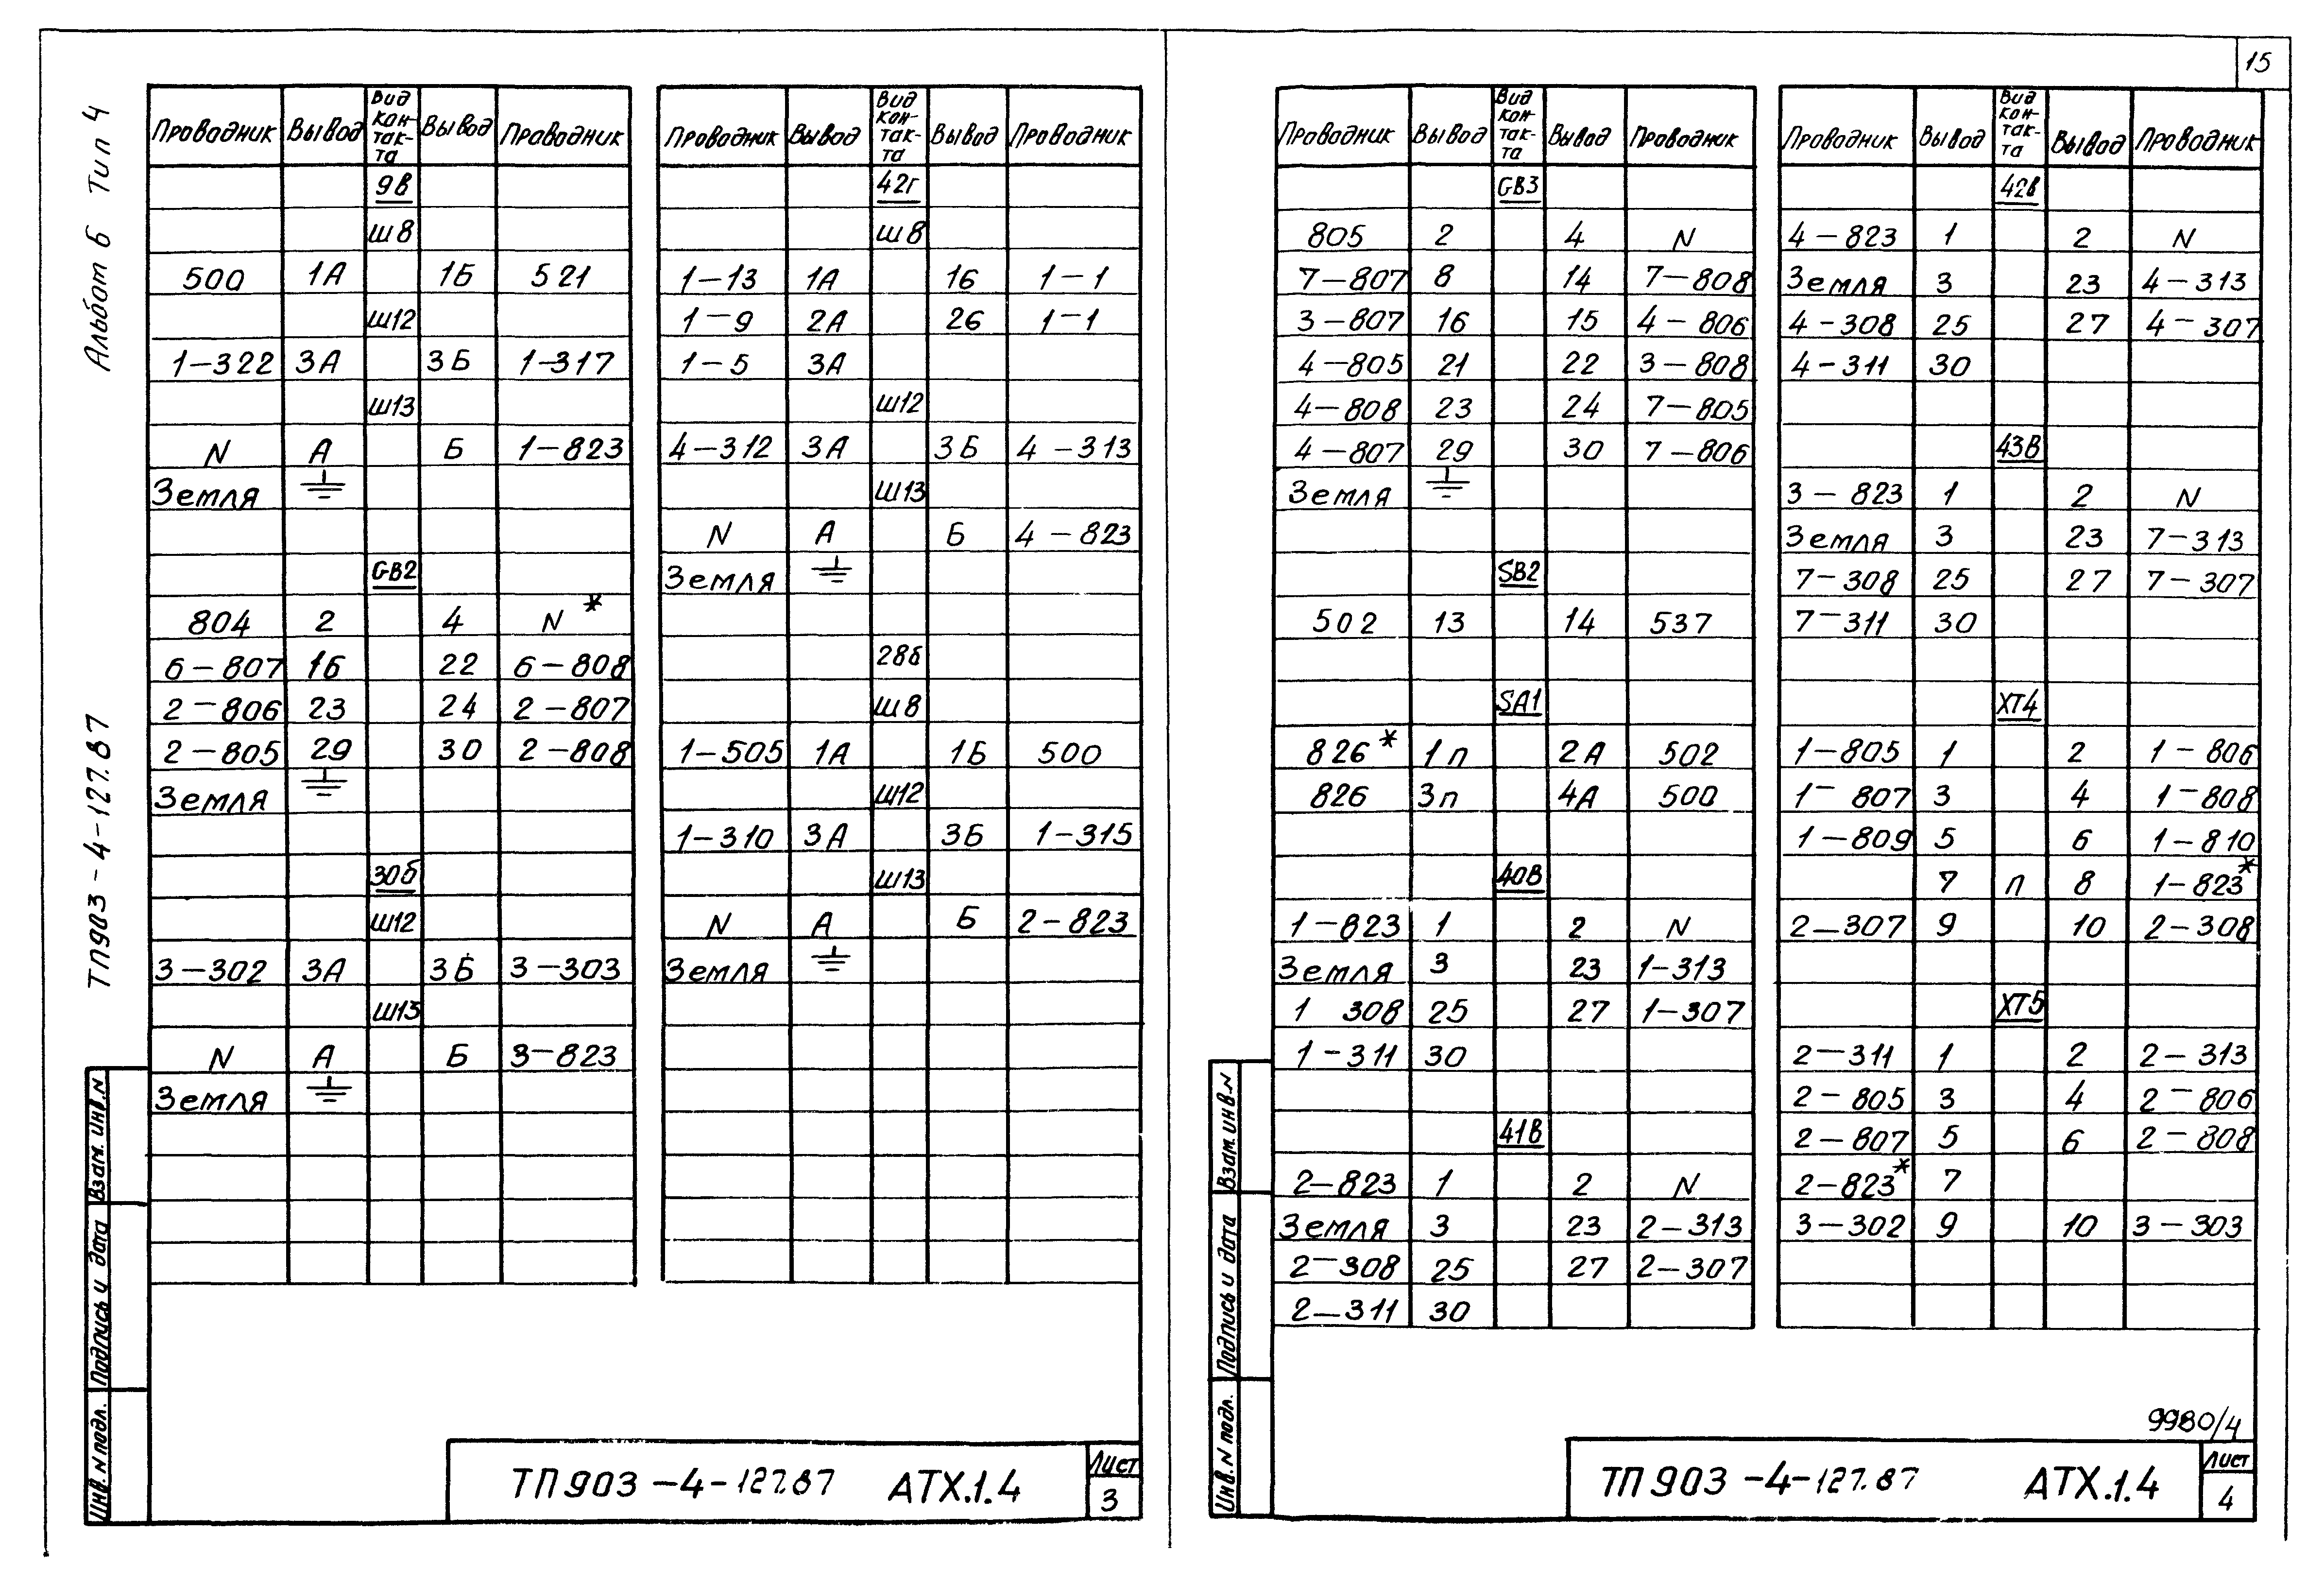 15
Альбом 6 Тип 4
ТП903-4-127.87
Проводник Вывод Вид контакта Вывод Проводник
9в
Ш8
500 1А 1Б 521
Ш12
1-322 3А 3Б 1-317
Ш13
N А Б 1-823
Земля ⏚
GB2
804 2 4 N*
6-807 16 22 6-808
2-806 23 24 2-807
2-805 29 30 2-808
Земля ⏚
30б
Ш12
3-302 3А 3Б 3-303
Ш13
N А Б 3-823
Земля ⏚
Проводник Вывод Вид кон-так-та Вывод Проводник
42г
Ш8
1-13 1А 1б 1-1
1-9 2А 2б 1-1
1-5 3А
Ш12
4-312 3А 3Б 4-313
Ш13
N А Б 4-823
Земля ⏚
28б
Ш8
1-505 1А 1Б 500
Ш12
1-310 3А 3Б 1-315
Ш13
N А Б 2-823
Земля ⏚
Взам. инв. N
Подпись и дата
Инв. N подл.
ТП903-4-127.87 АТХ.1.4
Лист
3
Проводник Вывод Вид кон-так-та Вывод Проводник
GB3
805 2 4 N
7-807 8 14 7-808
3-807 16 15 4-806
4-805 21 22 3-808
4-808 23 24 7-805
4-807 29 30 7-806
Земля ⏚
SB2
502 13 14 537
SA1
826* 1п 2А 502
826 3п 4А 500
40В
1-823 1 2 N
Земля 3 23 1-313
1 308 25 27 1-307
1-311 30
41В
2-823 1 2 N
Земля 3 23 2-313
2-308 25 27 2-307
2-311 30
Проводник Вывод Вид кон-так-та Вывод Проводник
42в
4-823 1 2 N
Земля 3 23 4-313
4-308 25 27 4-307
4-311 30
43В
3-823 1 2 N
Земля 3 23 7-313
7-308 25 27 7-307
7-311 30
ХТ4
1-805 1 2 1-806
1-807 3 4 1-808
1-809 5 6 1-810
7 п 8 1-823*
2-307 9 10 2-308
ХТ5
2-311 1 2 2-313
2-805 3 4 2-806
2-807 5 6 2-808
2-823* 7
3-302 9 10 3-303
Взам. инв. N
Подпись и дата
Инв. N подл.
9980/4
ТП903-4-127.87 АТХ.1.4
Лист
4